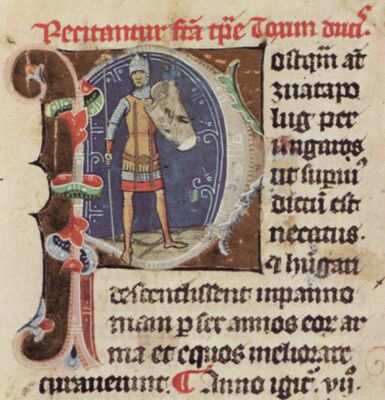 Recitantur fc̃a tp̃e Toxun ducis.
Postq̃m aũt
zuatapo
lug per
ungaros
ut supiu᷒
dictū est
necatus.
et hūgari
descendissent in panno
niam ꝑ sex annos eoꝝ ar
ma et equos meliorare
curauerunt. ¶ Anno igit̃. vij.